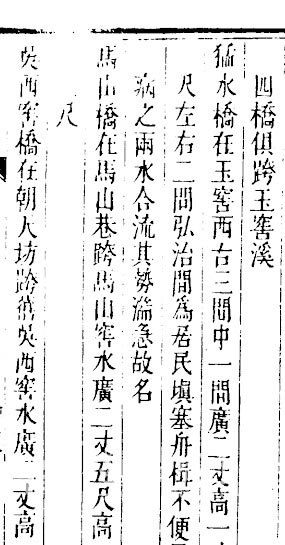 四橋俱跨玉窖溪
猛水橋在玉窖西古三間中一間廣二丈高一
尺左右二間弘治間為居民塡塞舟楫不便
病之兩水合流其勢湍急故名
馬山橋在馬山巷跨馬山窖水廣二丈五尺高
尺
吳西窖橋在朝天坊跨舊吳西窖水廣二丈高